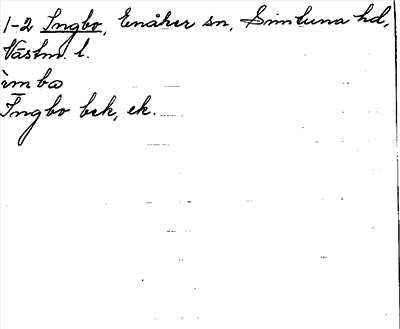 1-2 Ingbo, Enåker sn, Simtuna hd,
Västm. l.
ìm bɷ
Ingbo bek, ek.